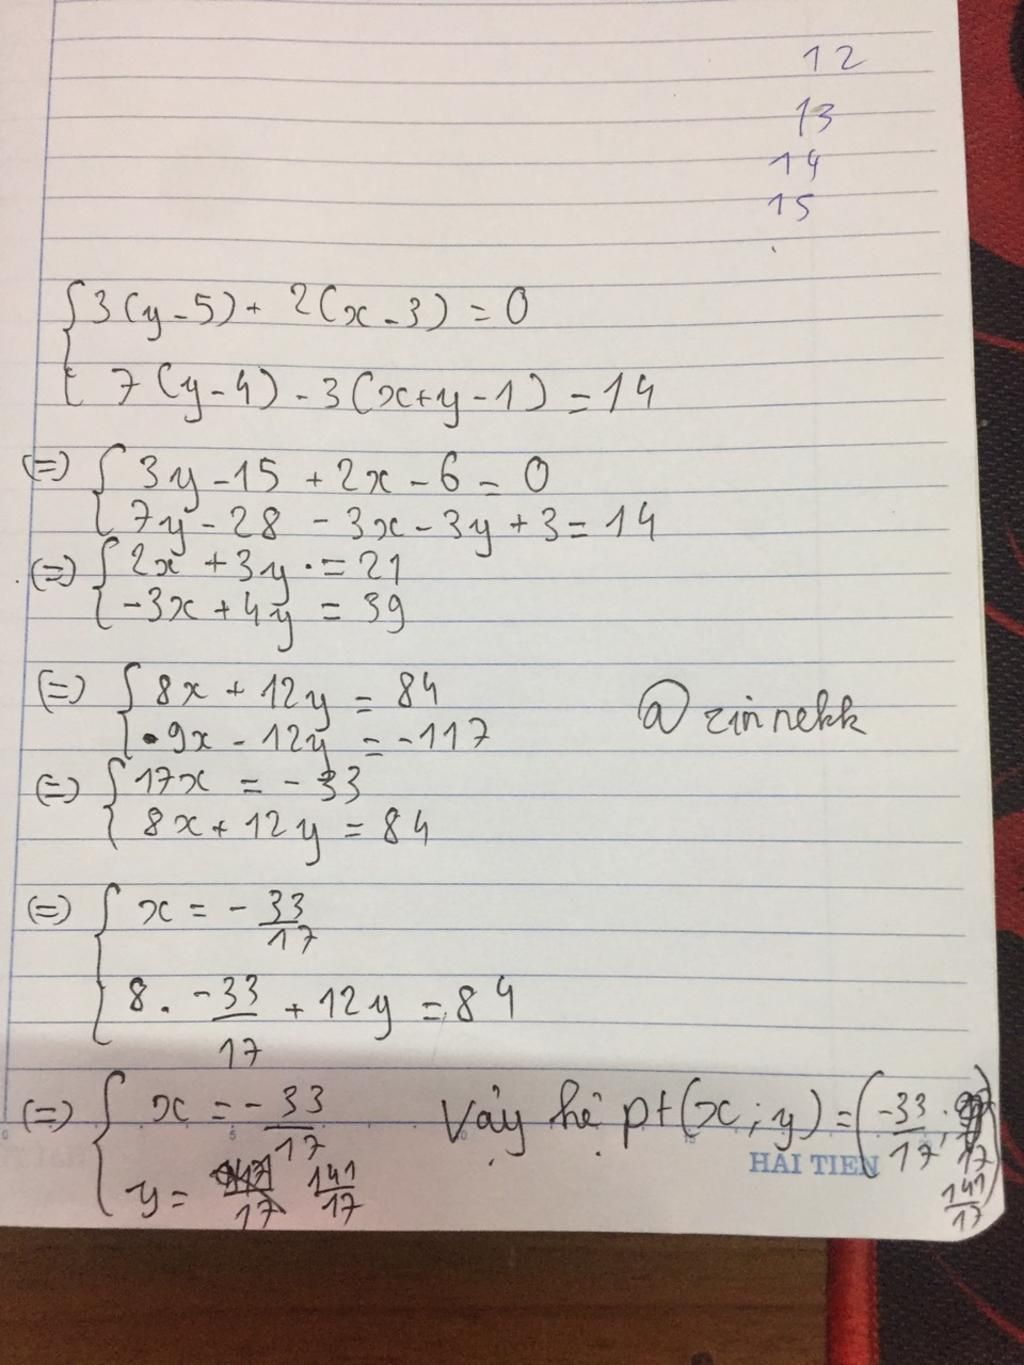 12
13
14
15
{ 3(y-5) + 2(x-3) = 0
7(y-4) - 3(x+y-1) = 14
(=) { 3y - 15 + 2x - 6 = 0
7y - 28 - 3x - 3y + 3 = 14
(=) { 2x + 3y = 21
-3x + 4y = 39
(=) { 8x + 12y = 84
9x - 12y = -117
@zinnekk
(=) { 17x = -33
8x + 12y = 84
(=) { x = -33/17
8. -33/17 + 12y = 84
(=) { x = -33/17
y = 141/17
Vậy hệ pt (x; y) = (-33/17; 141/17)
HẢI TIẾN